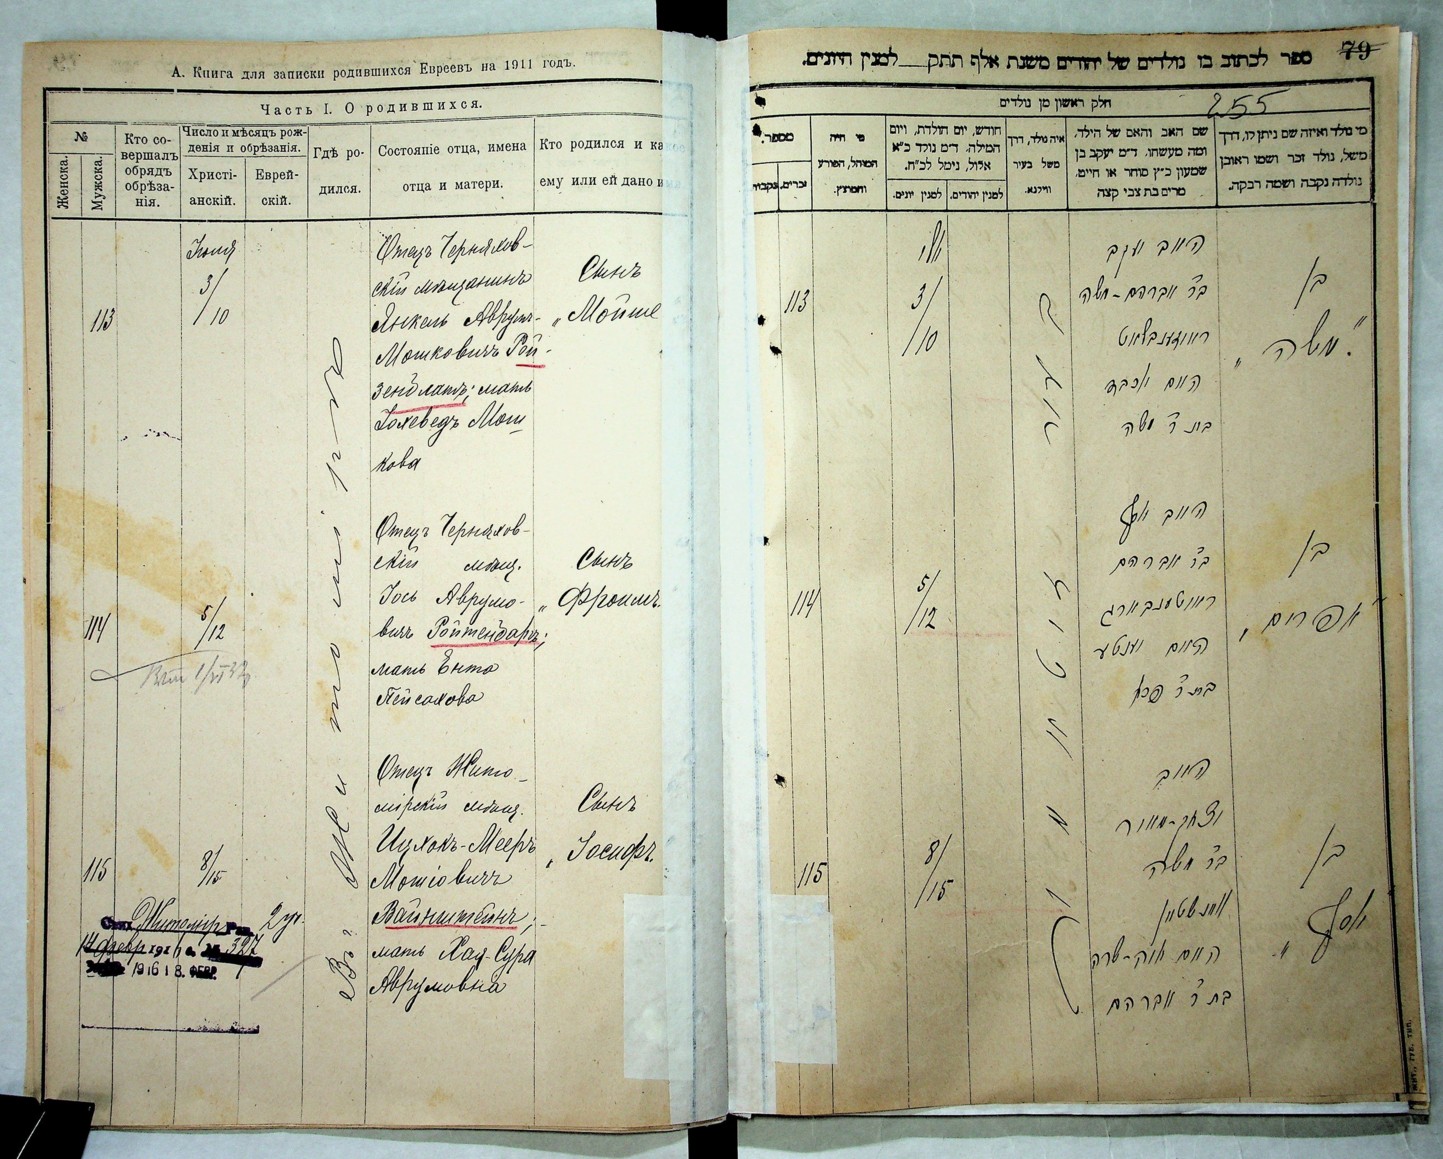 А. Книга для записки родившихся Евреевъ на 1911 годъ.
Часть I. О родившихся.
№
Женска.
Мужска.
Кто со-
вершалъ
обрядъ
обрѣза-
нія.
Число и мѣсяцъ рож-
денія и обрѣзанія.
Христі-
анскій.
Еврей-
скій.
Гдѣ ро-
дился.
Состояніе отца, имена
отца и матери.
Кто родился и ка
ему или ей дано и
113
Іюля
3/10
Отецъ Черняхов-
скій мѣщанинъ
Янкель Аврумъ-
Мошковичъ Рой-
зенблатъ; мать
Іохеведъ Мош
кова
Сынъ
„Мойше
Въ Житомірѣ
114
5/12
Отецъ Черняхов-
скій мѣщ.
Іось Аврумо-
вичъ Ройтенбаргъ;
мать Ента
Пейсахова
Сынъ
„Фроимъ.
115
8/15
Отецъ Жито-
мірскій мѣщ.
Ицхокъ-Мееръ
Мошіовичъ
Вайнштейнъ;
мать Хая-Сура
Аврумовна
Сынъ
„Іосифъ.
Житомір. Рав.
2 уч.
1916 18. ФЕВР.
ספר לכתוב בו נולדים של יהודים משנת אלף תתק___למנין היונים.
79
255
חלק ראשון מן נולדים
מספר.
נקבות
זכרים.
מי היה
המוהל, הפורע
והמוצץ.
חודש, יום הולדת, ויום
המילה. ד״מ נולד כ״א
אלול, נימל לכ״ח.
למנין יונים.
למנין יהודים.
איה נולד, דרך
משל בעיר
ווילנא.
שם האב והאם של הילד,
ומה מעשתו. ד״מ יעקב בן
שמעון כ״ץ סוחר או חייט,
מרים בת צבי קצה
מי נולד ואיזה שם ניתן לו, דרך
משל, נולד זכר ושמו ראובן
נולדה נקבה ושמה רבקה.
113
יולי
3/10
האב יעקב
בר׳ אברהם-משה
רויזענבלאט
האם יוכבד
בת ר׳ משה
בן
„משה.“
114
5/12
האב יוסף
בר׳ אברהם
רויטענבארג
האם יענטע
בת ר׳ פסח
בן
„אפרים“
115
8/15
האב
יצחק-מאיר
בר׳ משה
וויינשטיין
האם חיה-שרה
בת ר׳ אברהם
בן
„יוסף